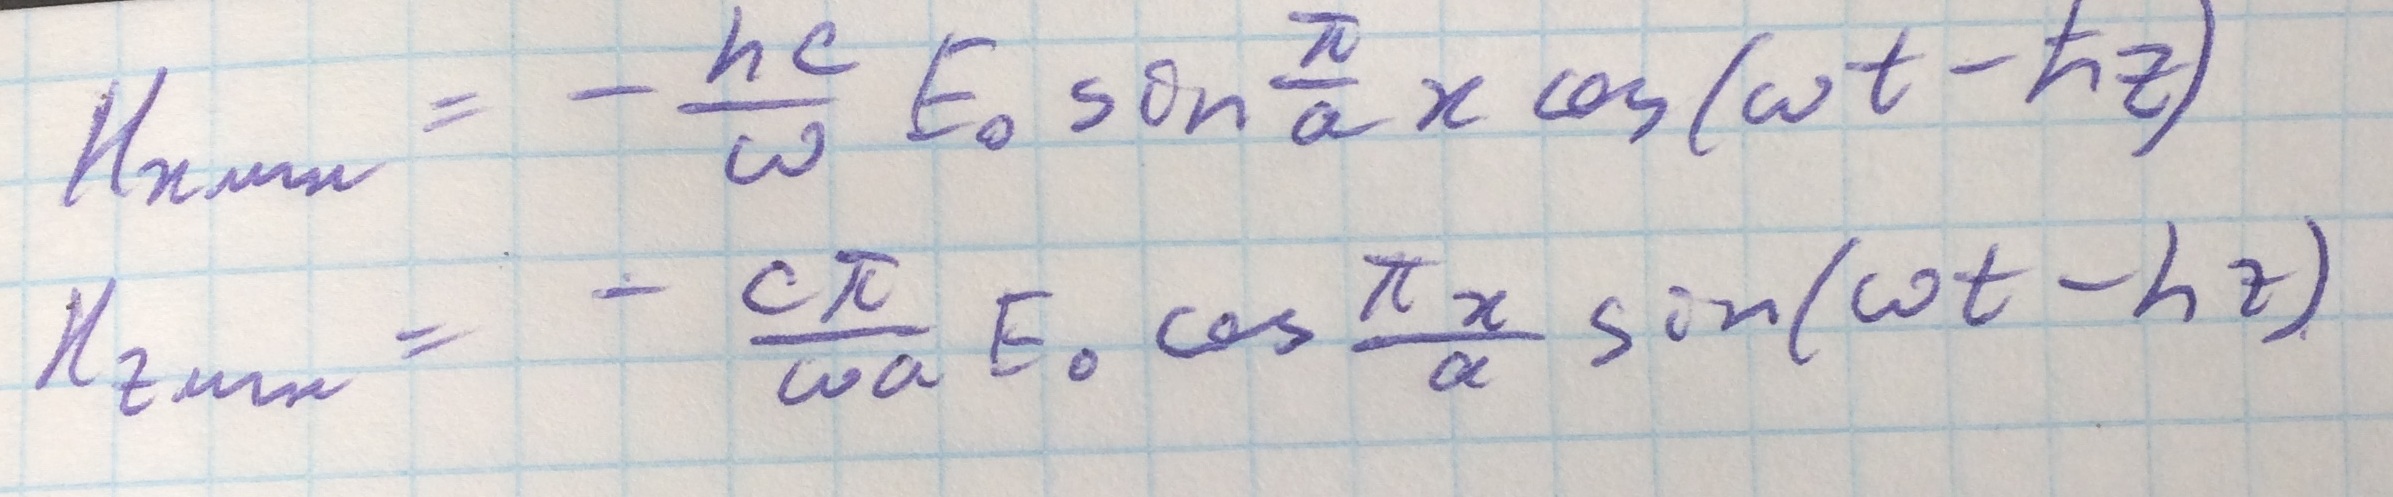 H_{x мгн} = - \frac{hc}{\omega} E_0 sin \frac{\pi}{a} x cos(\omega t - hz)
H_{z мгн} = - \frac{c\pi}{\omega a} E_0 cos \frac{\pi x}{a} sin(\omega t - hz)